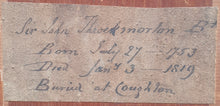 Sir John Throckmorton Bt
Born July 27 - 1753
Died Jany 3 - 1819
Buried at Coughton